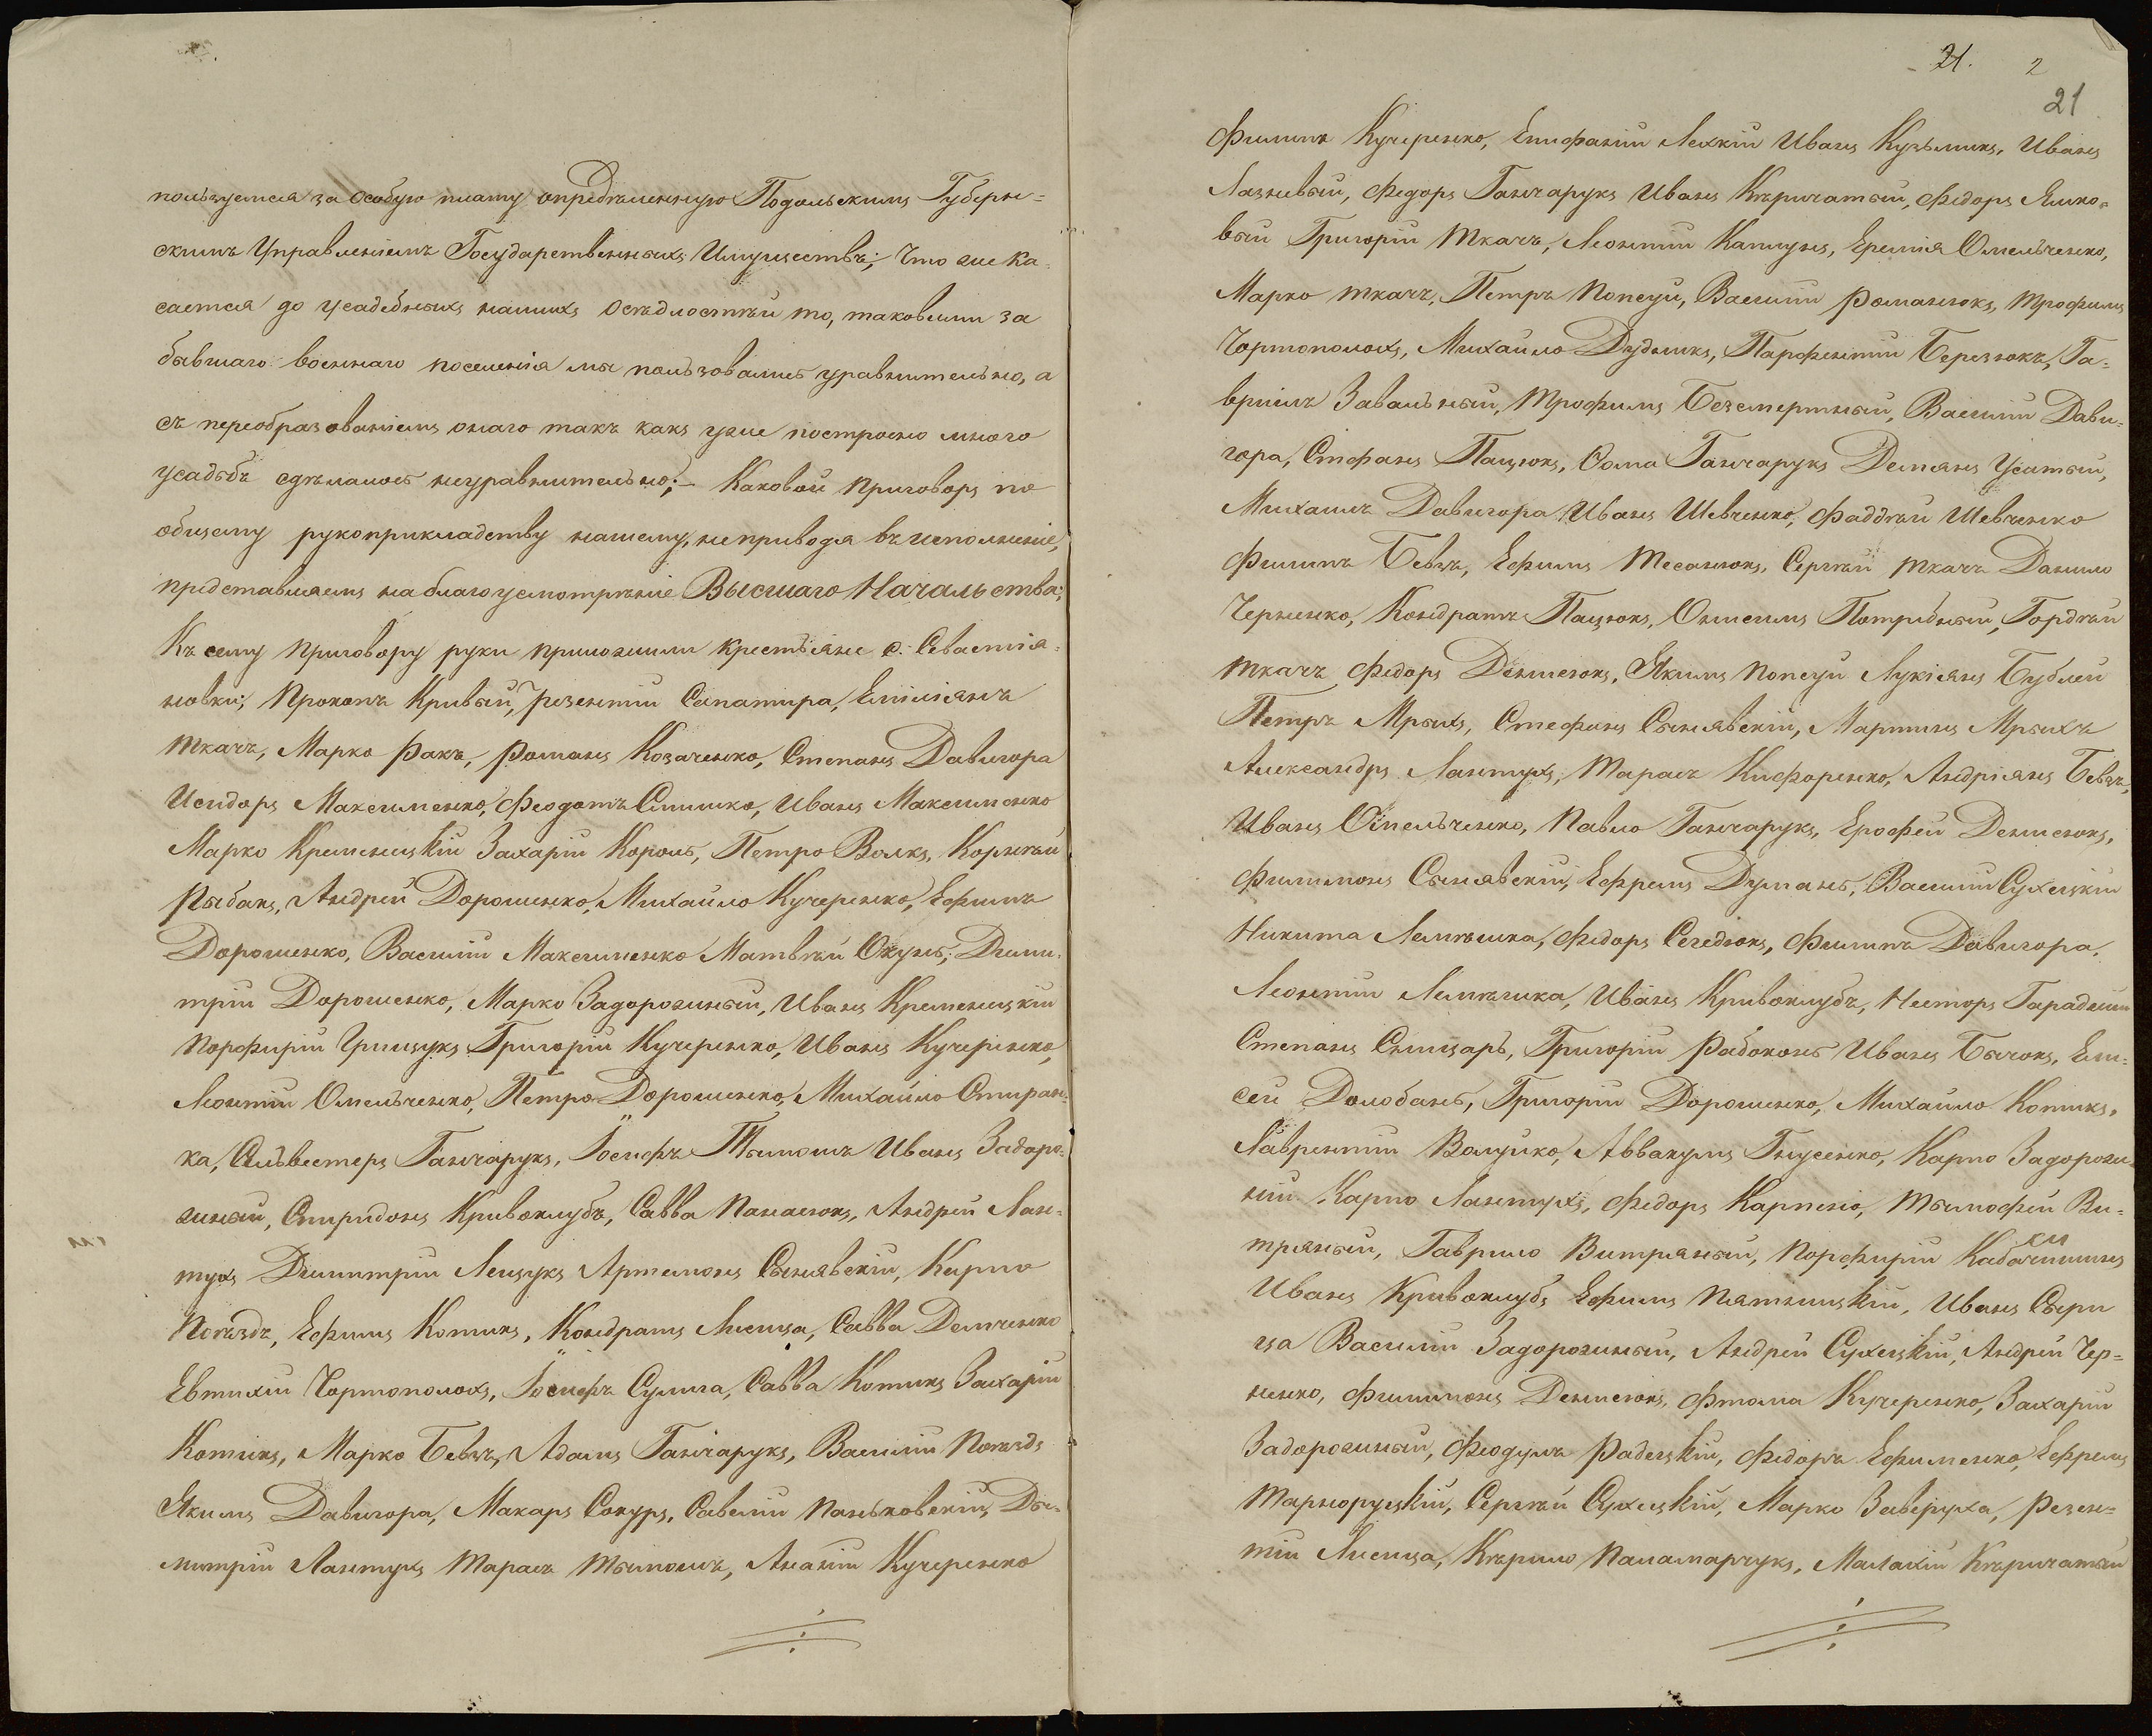 пользуемся за особую плату опредѣленную Подольскимъ Губерн=
скимъ Управленіемъ Государственныхъ Имуществъ; Что же ка=
сается до усадебныхъ нашихъ осѣдлостѣй то, таковыми за
бывшаго военнаго поселенія мы пользовались уравнительно, а
съ переобразованіемъ онаго такъ какъ уже построено много
усадьбъ сдѣлалось неуравнительно;– Каковой приговоръ по
общему рукоприкладству нашему, неприводя въ исполненіе,
представляемъ на благоусмотрѣніе Высшаго Начальства;
Къ сему приговору руки приложили крестьяне с. Севастія=
новки; Прокопъ Кривый, Терентій Сапатира, Емліянъ
Ткачъ, Марко Ракъ, Романъ Козаченко, Степанъ Давигора
Исидоръ Максименко, Феодотъ Слишко, Иванъ Максименко
Марко Кременецкій Захарій Король, Петро Волкъ, Корнѣй
Рыбакъ, Андрей Дорошенко, Михайло Кучеренко, Ефимъ
Дорошенко, Василій Максименко Матвѣй Окунь; Дими=
трій Дорошенко, Марко Задорожный, Иванъ Кременецкій
Порфирій Грищукъ Григорій Кучеренко, Иванъ Кучеренко,
Леонтій Омельченко, Петро Дорошенко, Михайло Спиран=
ка, Сильвестеръ Ганчарукъ, Іосифъ Тымошъ Иванъ Задоро=
жный, Спиридонъ Кривоклубъ, Савва Панасюкъ, Андрей Лан=
тухъ Димитрій Лещукъ Артемонъ Сынявскій, Карпо
Поѣздъ, Ефимъ Котикъ, Кондратъ Лисица, Савва Демченко
Евтихій Чортополохъ, Іосифъ Сулига, Савва Котикъ Захарій
Котикъ, Марко Бевзъ, Адамъ Ганчарукъ, Василій Поѣздъ
Якимъ Давигора, Макаръ Сокуръ, Савелій Паньковскій, Ды=
митрій Лантухъ Тарасъ Тымошъ, Ананій Кучеренко
21. 2
21
Филипъ Кучеренко, Епифаній Лехкій Иванъ Кузьмикъ, Иванъ
Лазневый, Федоръ Ганчарукъ Иванъ Кѣричатый, Федоръ Ялко=
вый Григорій Ткачъ, Леонтій Каплунъ, Еремія Омельченко,
Марко Ткачъ, Петръ Попсуй, Василій Романюкъ, Трофимъ
Чортополохъ, Михайло Дудникъ, Парфентій Березюкъ, Га=
вріилъ Завальный, Трофимъ Безсмертный, Василій Дави=
гора, Стефанъ Пацюкъ, Фома Ганчарукъ Демянъ Усатый,
Михаилъ Давигора, Иванъ Шевченко, Фаддѣй Шевченко
Филипъ Бевзъ, Ефимъ Месанюкъ, Сергѣй Ткачъ Данило
Черненко, Кондратъ Пацюкъ, Онисимъ Потребный, Гордѣй
Ткачъ Федоръ Денисюкъ, Якимъ Попсуй Лукіянъ Бублей
Петръ Мрыхъ, Стефанъ Сынявскій, Мартинъ Мрыхъ
Александръ Лантухъ, Тарасъ Кифоренко, Андріянъ Бевзъ,
Иванъ Омельченко, Павло Ганчарукъ, Ерофей Денисюкъ,
Филимонъ Сынявскій, Ефремъ Думанъ, Василій Сухецкій
Никита Лемѣшка, Федоръ Сегедюкъ, Филипъ Давигора,
Леонтій Лемѣшка, Иванъ Кривоклубъ, Несторъ
Степанъ Слищаръ, Григорій Рабоконь Иванъ Бычокъ, Ели=
сей Долобанъ, Григорій Дорошенко, Михайло Котикъ,
Лаврентій Волушко, Аввакумъ Гнусенко, Карпо Задорож=
ній Карпо Лантухъ, Федоръ Карпенко, Тымофей Ви=
тряный, Гаврило Витряный, Порфирій
Иванъ Кривоклубъ Ефимъ Пяткицкій, Иванъ Сври
ца Василій Задорожный, Андрей Сухецкій, Андрей Чер=
ненко, Филимонъ Денисюкъ, Фтома Кучеренко, Захарій
Задорожный, Феодулъ Радецкій, Федоръ Ефименко, Ефремъ
Тарнорудскій, Сергѣй Сухецкій, Марко Заверуха, Терен=
тій Лисица, Кѣрило Паламарчукъ, Малахій Кѣричатый